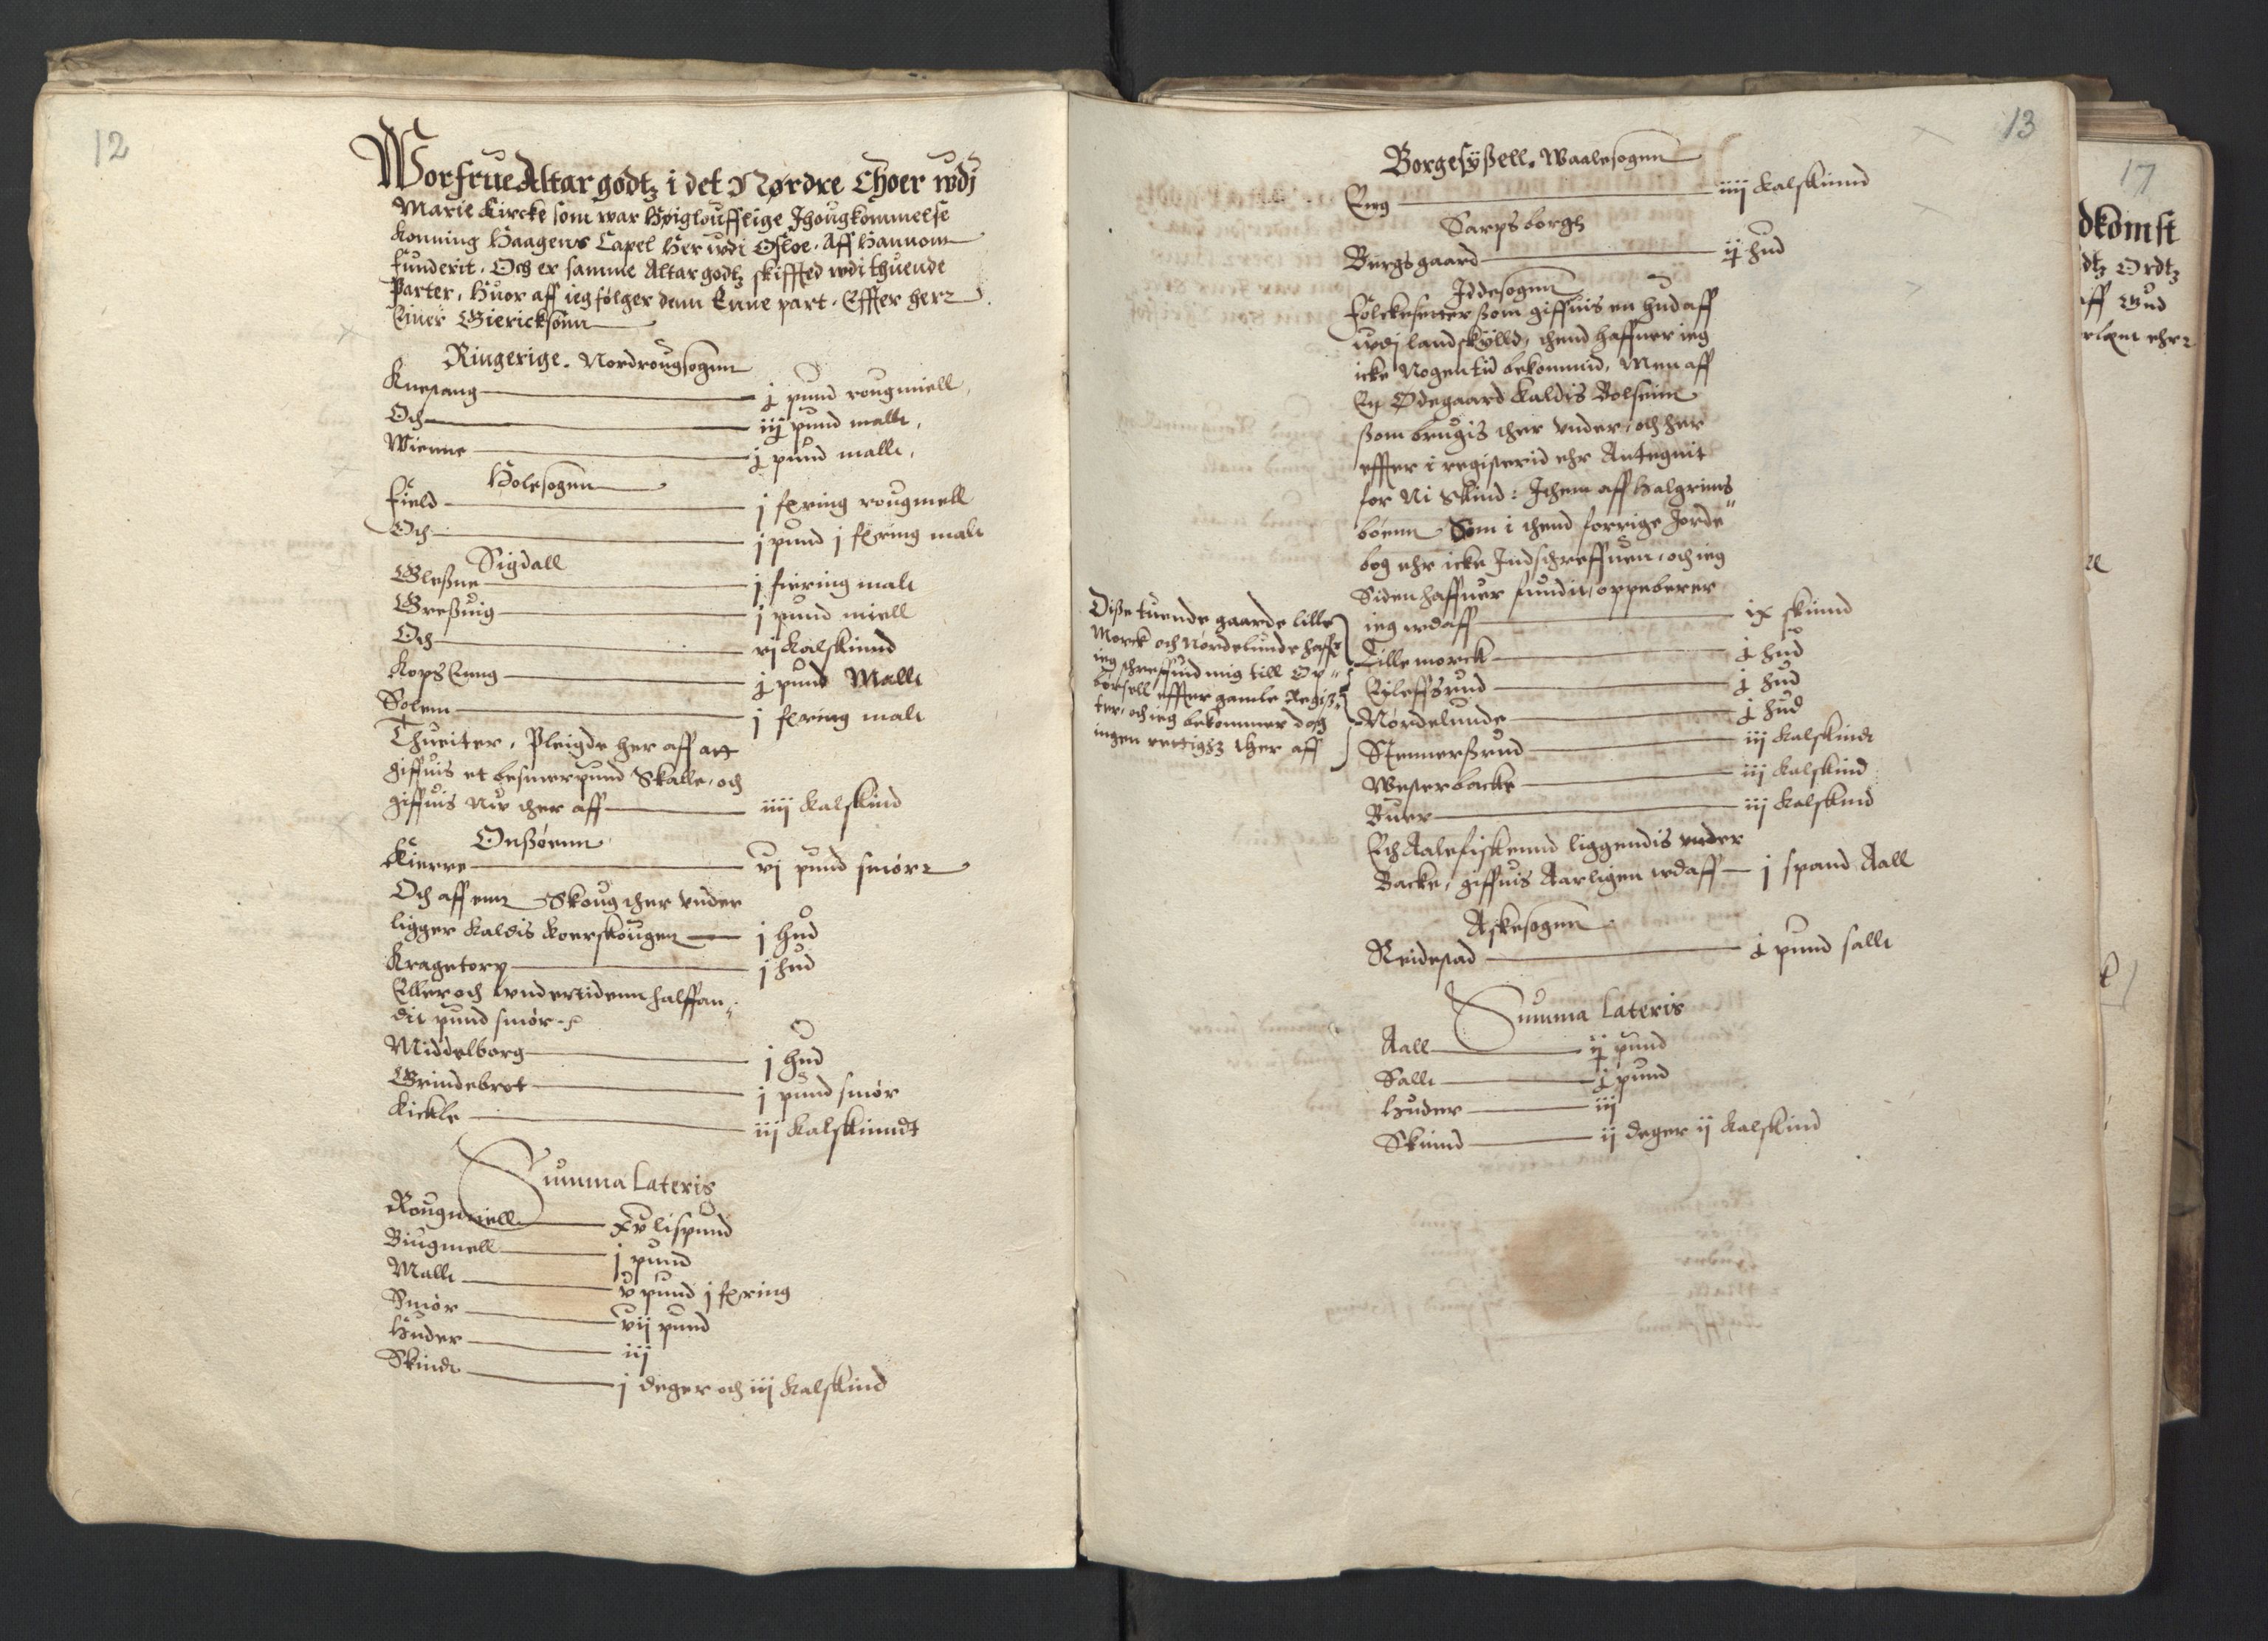 12
Worfrue Altar godtz i det Nørdre Choer wdj
Marie Kircke som war Høigloufflige Ihougkommelse
Konning Haagens Capel Her wdi Osloe. Aff Hannom
funderit. Och er samme Altar godtz skiffted wdi thuende
Parter, Huor aff ieg følger denn Enne part. Effter herr
Einer Giericksønn
Ringerige. Nordrougsognn
Knestang j pund rougmiell
Och iij pund mallt,
Wienne j pund mallt,
Holesogenn
Field j fering rougmell
Och j pund j fering malt
Sigdall
Gleßne j fiering malt
Greßuig j pund miell
Och vj Kalskinnd
Kops Enng j pund Mallt
Solem j fering malt
Thueiter, Pleigde her aff att
giffuis et besmerpund Skalle, och
giffuis Nu ther aff iiij Kalskind
Onßøenn
Kierre vj pund smørr
Och aff enn Skoug ther vnder
ligger Kaldis Koerskougen j hud
Kragetorp j hud
Eller och wndertidenn halffan„
dit pund smør
Middelborg j hud
Grindebrot j pund smør
Kickle iij Kalskinndt
Summa Lateris
Rougmiell xv lispund
Biugmell j pund
Mallt v pund j fering
Smør vij pund
Huder iij
Skindt j deger och iij Kalskind
13
Borgesyßell. Waalesognn
Eng iiij Kalskinnd
Sarpsborgh
Borgsgaard ij hud
Iddesognn
Folckesetter ßom giffuis en hud aff
wdj landskylld, thend haffuer ieg
icke Nogen tid bekommid, Men aff
En Ødegaard Kaldis Bolsenn
ßom brugis ther vnder, och her
effter i registerid ehr Antegnit
for Ni Skind: Ithem aff Halgrims„
bøenn Som i thend forrige Jorde„
bog ehr icke Indschreffuen, och ieg
Siden haffuer fundit, oppeberer
ieg wdaff ix skinnd
Lille morck j hud
Eileffsrud j hud
Nordelunde j hud
Stennerßrud iij Kalskindt
Westerbacke iij Kalskind
Buer iij Kalskind
Och Aalefiskennd liggendis vnder
Backe, giffuis Aarligen wdaff j spand Aall
Diße tuende gaarde lille
Morck och Nordelunde haffr
ieg schreffuid mig till Op„
børsell effter gamle Regis„
ter, och ieg bekommer dog
ingen rettighz ther aff
Askesogenn
Reidestad j pund sallt
Summa Lateris
Aall ij pund
Sallt j pund
Huder iij
Skinnd ij deger ij Kalskind
17
dkomst
dtz Ordtz
aff Gud